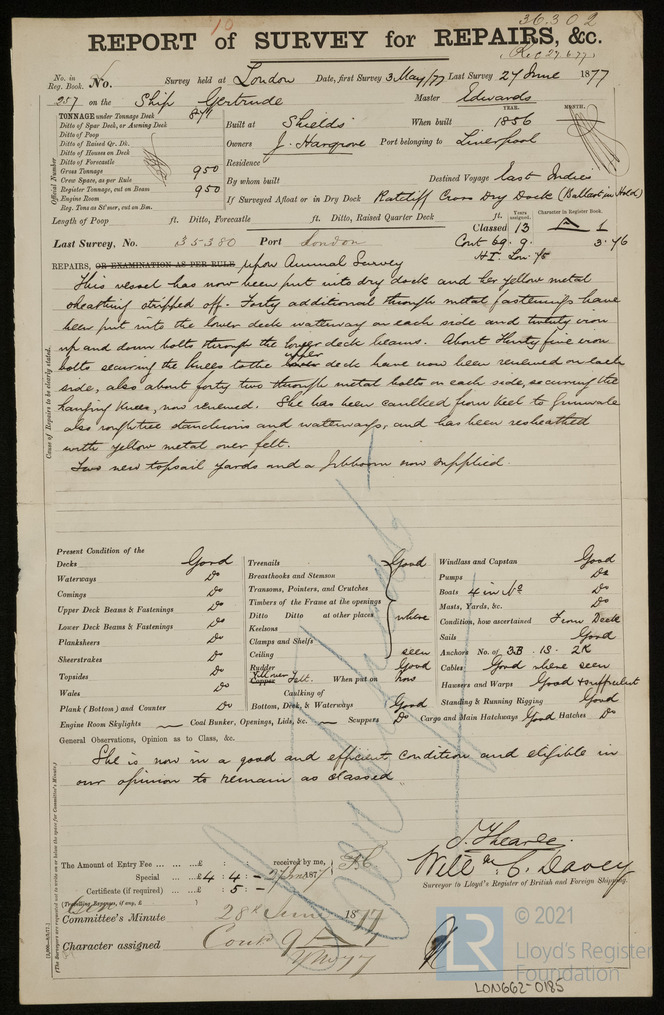 36302
10
REPORT of SURVEY for REPAIRS, &c.
Rec 27.6.77
No. in Reg. Book. No. Survey held at London Date, first Survey 3 May/77 Last Survey 27 June 1877
257 on the Ship Gertrude Master Edwards
TONNAGE under Tonnage Deck
Ditto of Spar Deck, or Awning Deck
Ditto of Poop
Ditto of Raised Qr. Dk.
Ditto of Houses on Deck
Ditto of Forecastle
Gross Tonnage 950
Crew Space, as per Rule
Register Tonnage, cut on Beam 950
Engine Room
Reg. Tons as St'mer, cut on Bm.
Official Number
Built at Shields When built YEAR. 1856 MONTH.
Owners J. Hargrove Port belonging to Liverpool
Residence
By whom built Destined Voyage East Indies
If Surveyed Afloat or in Dry Dock Ratcliff Cross Dry Dock (Ballast in Hold)
Length of Poop ft. Ditto, Forecastle ft. Ditto, Raised Quarter Deck ft.
Years assigned. Character in Register Book.
Classed 13 A 1
Last Survey, No. 35380 Port London Cont 69. 9. 3.76
REPAIRS, OR EXAMINATION AS PER RULE upon Annual Survey
Cause of Repairs to be clearly stated.
This vessel has now been put into dry dock and her yellow metal
sheathing stripped off. Forty additional through metal fastenings have
been put into the lower deck waterway on each side and twenty iron
up and down bolts through the lower deck beams. About thirty five iron
bolts securing the knees to the lower upper deck have now been renewed on each
side, also about forty two through metal bolts on each side, securing the
hanging knees, now renewed. She has been caulked from Keel to Gunwale
also roughtree stanchions and waterways, and has been resheathed
with yellow metal over felt.
Two new topsail yards and a Jibboom now supplied.
Present Condition of the
Decks Good
Waterways Do
Comings Do
Upper Deck Beams & Fastenings Do
Lower Deck Beams & Fastenings Do
Planksheers Do
Sheerstrakes Do
Topsides Do
Wales Do
Plank (Bottom) and Counter Do
Treenails Good
Breasthooks and Stemson
Transoms, Pointers, and Crutches
Timbers of the Frame at the openings
Ditto Ditto at other places where
Keelsons
Clamps and Shelfs
Ceiling seen
Rudder Good
Copper Yell over Felt. When put on now
Caulking of
Bottom, Deck, & Waterways Good
Windlass and Capstan Good
Pumps Do
Boats 4 in No. Do
Masts, Yards, &c. Do
Condition, how ascertained From Deck
Sails Good
Anchors No. of 3B. 1S. 2K
Cables Good where seen
Hawsers and Warps Good & sufficient
Standing & Running Rigging Good
Engine Room Skylights — Coal Bunker, Openings, Lids, &c. — Scuppers Do Cargo and Main Hatchways Good Hatches Do
General Observations, Opinion as to Class, &c.
She is now in a good and efficient condition and eligible in
our opinion to remain as classed.
The Amount of Entry Fee ... ... ...£ : : received by me,
Special ... ...£4 : 4 : – 27 June 1877
Certificate (if required) ... : 5 : –
(Travelling Expenses, if any, £ )
Will m C. Davey
Surveyor to Lloyd's Register of British and Foreign Shipping.
Committee's Minute 28th June 1877
Character assigned
© 2021
LR
Lloyd's Register
Foundation
LON662-0185